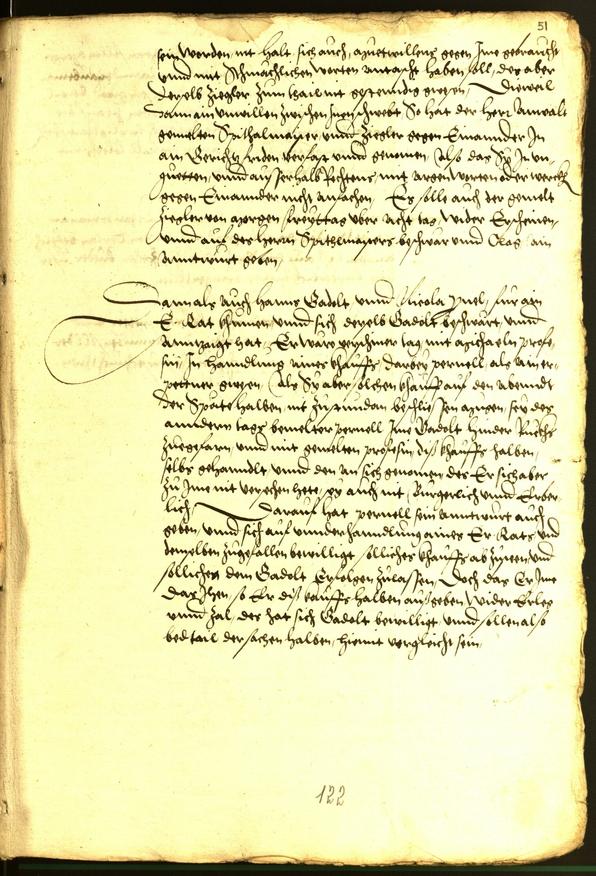 51
sein worden, nit halt sich auch, aigetwillens gegen Ime gebraucht
vnnd mit schmachlichen worten antasst haben soll, des aber
derselb Ziegler zum thail nit gestenndig gwesen, Dieweil
dann ain vnwillen zwischen Inen schwebt So hat der herr Anwalt
gemelten Spitlmayer vnnd Ziegler gegen Einannder In
ain Gerichts friden verfasst vnnd genomen, Also das Sy In vn-
guetten, vnnd ausserhalb Rechtens, mit argen worten oder werckh
gegen Einannder nicht anfachen, Er solle auch der gemelt
Ziegler von morgen freyttag vber acht tag, wider Erscheinen,
vnnd auf des herrn Spitlmayers beschwar vnnd Clag ain
Anntwurt geben,
Damals auch Hanns Gadolt vnnd Nicola Puel, für ain
E. Rat khumen, vnnd sich derselb Gadolt beschwärt, vnnd
Anntzaigt hat, Er ware verschiner tag mit Michaeln profe-
sin, In hanndlung aines khauffs, darbey pernell als ain er-
pettner gwesen, Als Sy aber solchen khauff auf den abenndt
der Spate halben, nit zu enndan beschliessen mugen, sey des
anndern tags bemelter pernell Ime Gadolt hinder Ruckhs
zuegefarn, vnnd mit gemelten profesin diss khauffs halben,
selbs gehanndlt vnnd den an sich genomen, des Er sich aber
zu Ime nit versehen hete, sey auch nit, Burgerlich vnnd Erber-
lich, Darauf hat pernell sein anntwurt auch
geben, vnnd sich auf vnnderhanndlung aines Er. Rats vnd
demselben zugefallen bewilligt, solliches khauffs abzusteen, vnd
sollichen dem Gadolt Erfolgen zulassen, Doch das Er Ime
das Ihen, so Er diss kauffs halben ausgeben, wider Erleg
vnnd zal, des hat sich Gadolt bewilligt vnnd sollen also
bed tail der sachen halben, hiemit vergleicht sein,
122